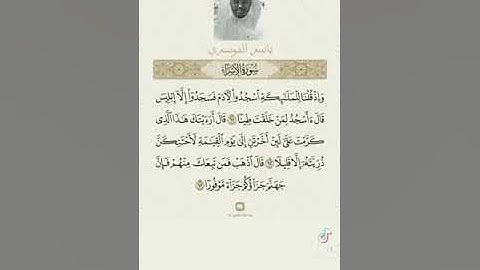 ياسر الدوسري
سُورَةُ الإِسْرَاء
وَإِذْ قُلْنَا لِلْمَلَٰٓئِكَةِ ٱسْجُدُوا۟ لِءَادَمَ فَسَجَدُوٓا۟ إِلَّآ إِبْلِيسَ
قَالَ ءَأَسْجُدُ لِمَنْ خَلَقْتَ طِينًا ٦١ قَالَ أَرَءَيْتَكَ هَٰذَا ٱلَّذِى
كَرَّمْتَ عَلَىَّ لَئِنْ أَخَّرْتَنِ إِلَىٰ يَوْمِ ٱلْقِيَٰمَةِ لَأَحْتَنِكَنَّ
ذُرِّيَّتَهُۥٓ إِلَّا قَلِيلًا ٦٢ قَالَ ٱذْهَبْ فَمَن تَبِعَكَ مِنْهُمْ فَإِنَّ
جَهَنَّمَ جَزَآؤُكُمْ جَزَآءً مَّوْفُورًا ٦٣